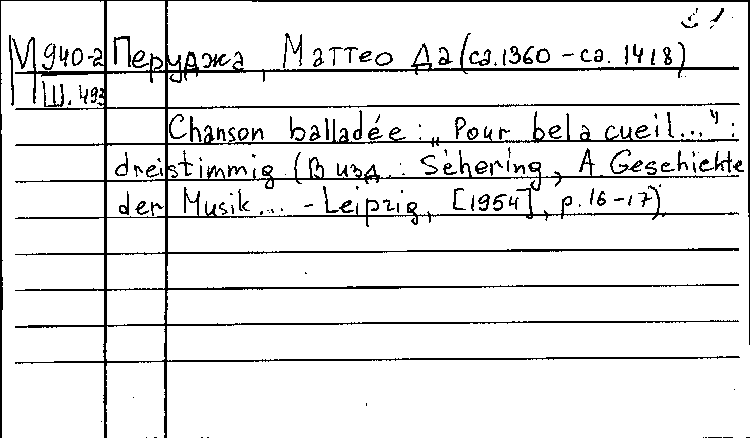 М 940-2 Перуджа, Маттео Да (ca. 1360 – ca. 1418)
Ш. 493
Chanson balladée: „Pour bel a cueil...":
dreistimmig (В изд.: Schering, A. Geschichte
der Musik... - Leipzig, [1954], p. 16-17).